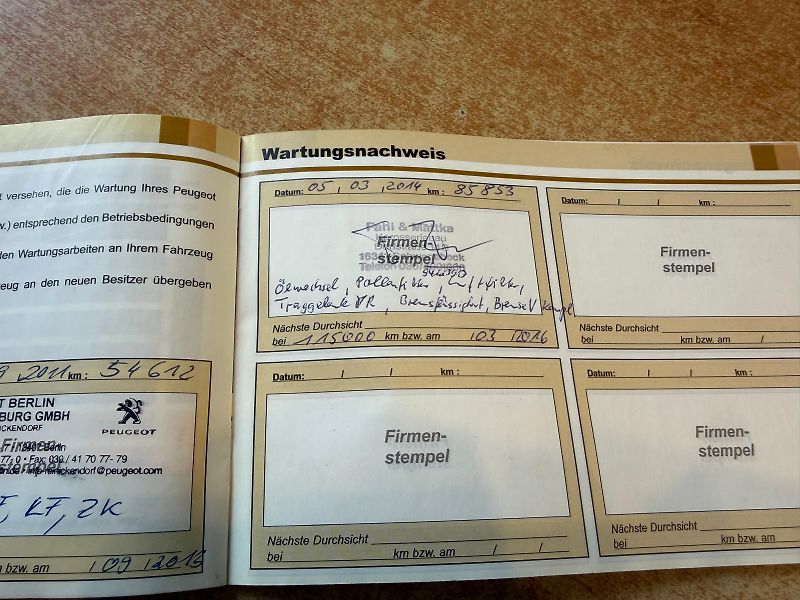 t versehen, die die Wartung Ihres Peugeot
w.) entsprechend den Betriebsbedingungen
den Wartungsarbeiten an Ihrem Fahrzeug
zeug an den neuen Besitzer übergeben
9 2011 km : 54612
T BERLIN
BURG GMBH
ICKENDORF
PEUGEOT
Firmen-
Berlin
77 0 • Fax: 030 / 41 70 77- 79
stempel
@peugeot.com
KF, ZK
w bzw. am / 09 / 2013
Wartungsnachweis
Datum: 05 / 03 / 2014 km : 85853
Pahl & Mattka
Firmen-
stempel
Telefon
Ölwechsel, Pollenfilter, Luftfilter,
Traggelenk VR, Bremsflüssigkeit, Bremse V kompl
Nächste Durchsicht
bei 115000 km bzw. am / 03 / 2016
Datum: / / km :
Firmen-
stempel
Nächste Durchsicht
bei km bzw. am /
Datum: / / km :
Firmen-
stempel
Nächste Durchsicht
bei km bzw. am / /
Datum: / / km:
Firmen-
stempel
Nächste Durchsicht
bei km bzw. am /